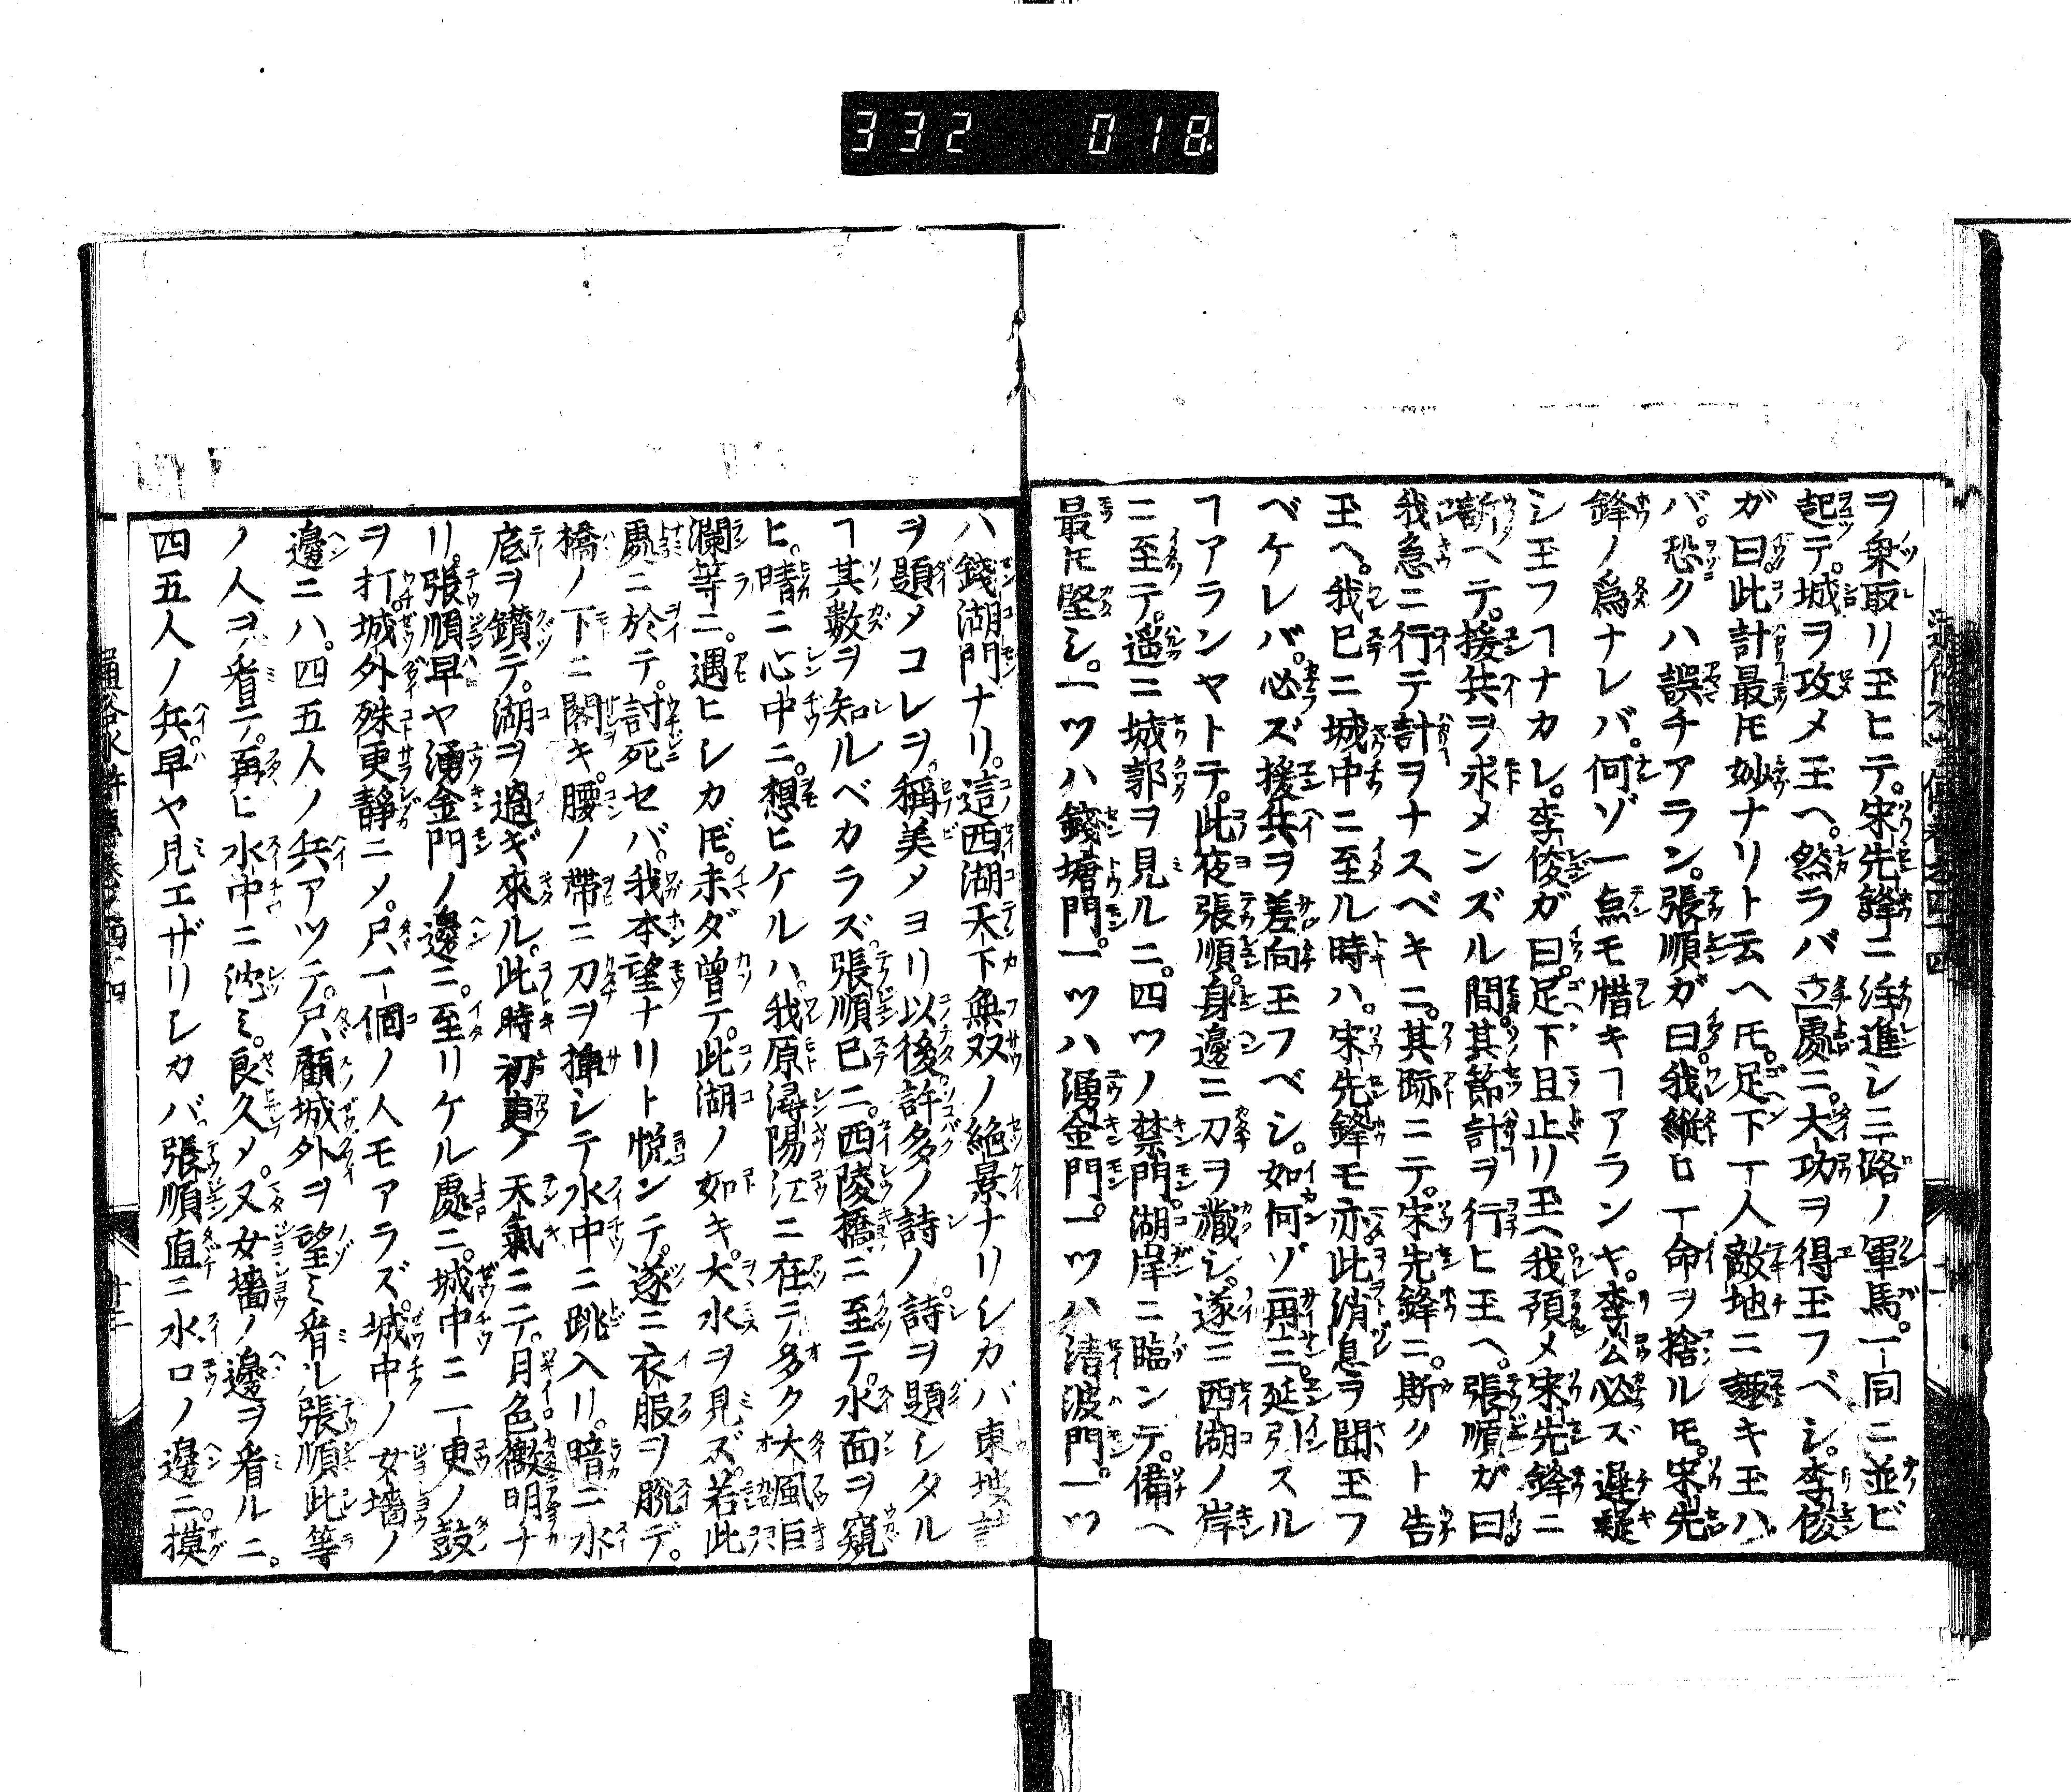 332 018
ヲ乗取リ玉ヒテ。宋先鋒ニ注進シ三路ノ軍馬。一同ニ並ビ
起テ。城ヲ攻メ玉ヘ。然ラバ立處ニ。大功ヲ得玉フベシ。李俊
ガ曰。此計最モ妙ナリト云ヘ𪜈。足下一人敵地ニ趣キ玉ハ
バ。恐クハ誤チアラン。張順ガ曰。我縦ヒ一命ヲ捨ルモ。宋先
鋒ノ爲ナレバ。何ゾ一点モ惜キヿアランヤ。李公必ズ遅疑
シ玉フヿナカレ。李俊ガ曰。足下且止リ玉ヘ我預メ宋先鋒ニ
訴ヘテ。援兵ヲ求メンズル間。其節計ヲ行ヒ玉ヘ。張順ガ曰。
我急ニ行テ計ヲナスベキニ。其跡ニテ。宋先鋒ニ。斯クト告
玉ヘ。我已ニ城中ニ至ル時ハ。宋先鋒モ亦此消息ヲ聞玉フ
ベケレバ。必ズ援兵ヲ差向玉フベシ。如何ゾ再三。延引スル
ヿアランヤトテ。此夜張順。身邊ニ刀ヲ藏シ。遂ニ西湖ノ岸
ニ至テ。遥ニ城郭ヲ見ルニ。四ツノ禁門。湖岸ニ臨ンデ。備ヘ
最モ堅シ。一ツハ錢塘門。一ツハ湧金門。一ツハ清波門。一ツ
ハ錢湖門ナリ。這西湖天下無双ノ絶景ナリシカバ東坡詩
ヲ題メコレヲ。稱美メヨリ以後。許多ノ詩ノ詩ヲ題シタル
ヿ其數ヲ知ルベカラズ。張順已ニ。西陵橋ニ至テ。水面ヲ窺
ヒ。晴ニ心中ニ。想ヒケルハ。我原潯陽江ニ在テ多ク大風巨
瀾等ニ。遇ヒシカ𪜈。未ダ曽テ。此湖ノ如キ。大水ヲ見ズ。若此
處ニ於テ。討死セバ。我本望ナリト悦ンデ。遂ニ衣服ヲ脱デ。
橋ノ下ニ閣キ。腰ノ帶ニ刀ヲ挿シテ水中ニ跳入リ。暗ニ水
底ヲ鑽テ。湖ヲ過ギ來ル。此時初更ノ天氣ニテ。月色微明ナ
リ。張順早ヤ湧金門ノ邊ニ。至リケル處ニ。城中ニ一更ノ鼓
ヲ打。城外殊更靜ニメ。只一個ノ人モアラズ。城中ノ女墻ノ
邊ニハ。四五人ノ兵アツテ。只顧城外ヲ望ミ看ル張順此等
ノ人ヲ看テ。再ヒ水中ニ沈ミ。良久メ。又女墻ノ邊ヲ看ルニ。
四五人ノ兵早ヤ見エザリシカバ。張順直ニ水口ノ邊ニ。摸